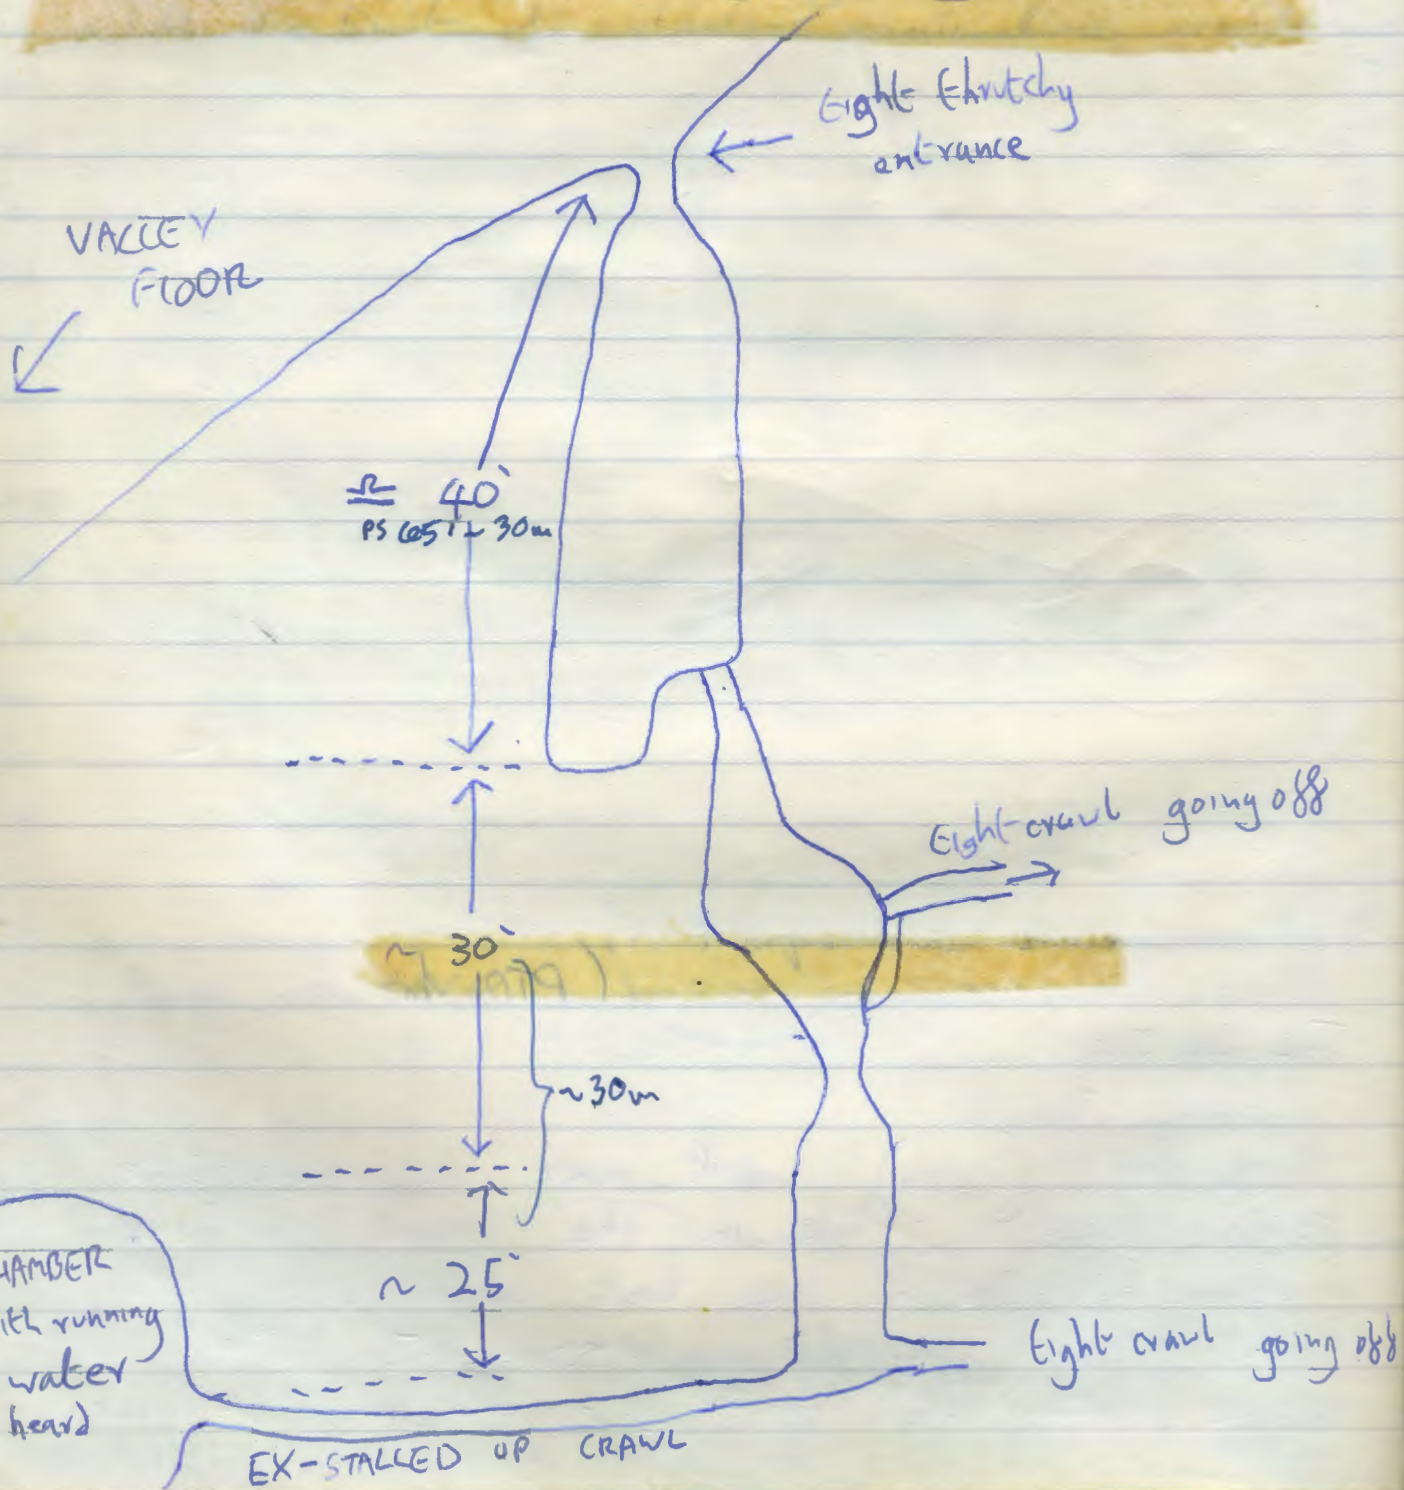 tight thrutchy
entrance
VALLEY
FLOOR
≏ 40'
30m
tight crawl going off
~ 30'
~30m
~ 25'
HAMBER
ith running
water
heard
tight crawl going off
EX-STALLED UP CRAWL